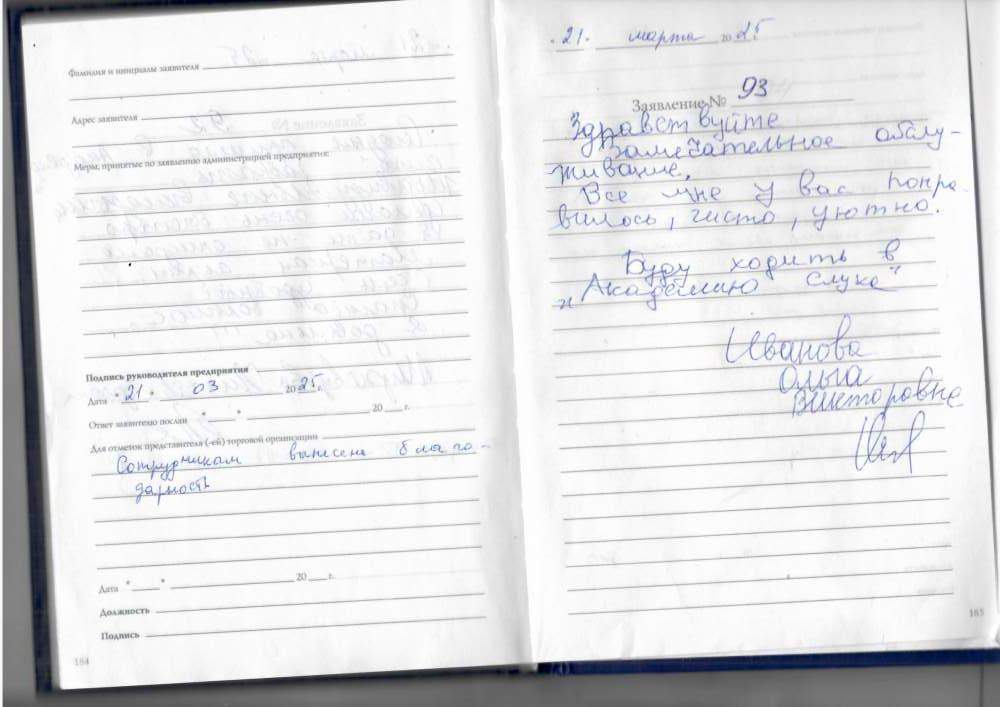 Фамилия и инициалы заявителя
Адрес заявителя
Меры, принятые по заявлению администрацией предприятия:
Подпись руководителя предприятия
Дата "21" 03 2025 г.
Ответ заявителю послан " " 20 г.
Для отметок представителя (-ей) торговой организации
Сотрудникам вынесена благо-
дарность
Дата " " 20 г.
Должность
Подпись
184
"21" марта 2025
Заявление № 93
Здравствуйте
Замечательное обслу-
живание.
Все мне у вас понра-
вилось, чисто, уютно.
Буду ходить в
"Академию слуха"
Иванова
Ольга
Викторовна
185